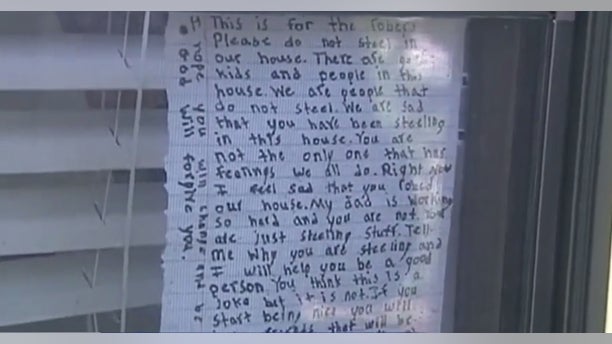 This is for the robers
Please do not steel in
our house. There are good
kids and people in this
house. We are people that
do not steel. We are sad
that you have been steeling
in this house. You are
not the only one that has
feelings we all do. Right Now
I feel sad that you robed
our house. My dad is working
so hard and you are not. You
are just steeling stuff. Tell-
me why you are steeling and
it will help you be a good
person. You think this is a
joke but it is not. If you
start being nice you will
that will be-
I hope you will change and be
God will forgive you.